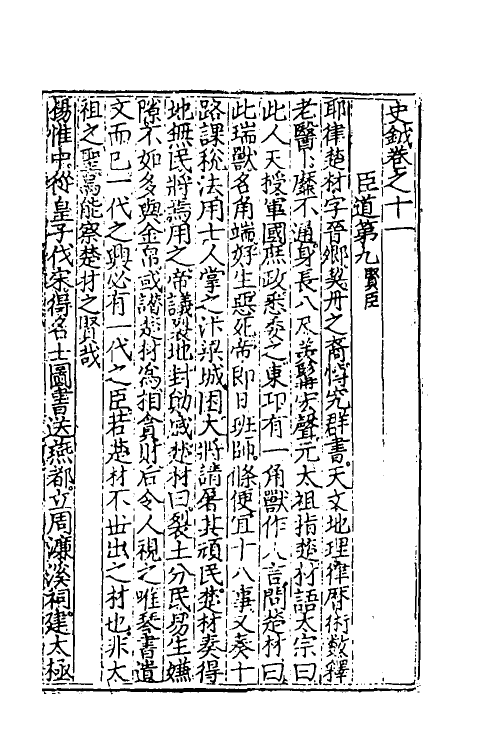 史鉞卷之十一
臣道第九 賢臣
耶律楚材字晉卿契丹之裔博究群書天文地理律曆術數釋
老醫卜靡不通身長八尺美髯宏聲元太祖指楚材語太宗曰
此人天授軍國庶政悉委之東印有一角獸作人言問楚材曰
此瑞獸名角端好生惡死帝即日班師條便宜十八事又奏十
路課稅法用士人掌之汴梁城困大將請屠其頑民楚材奏得
地無民將焉用之帝議裂地封勛戚楚材曰裂土分民易生嫌
隙不如多與金帛或譖楚材為相貪財后令人視之唯琴書遺
文而已一代之興必有一代之臣若楚材不世出之材也非太
祖之聖焉能察楚材之賢哉
楊惟中從皇子伐宋得名士圖書送燕都立周濂溪祠建太極